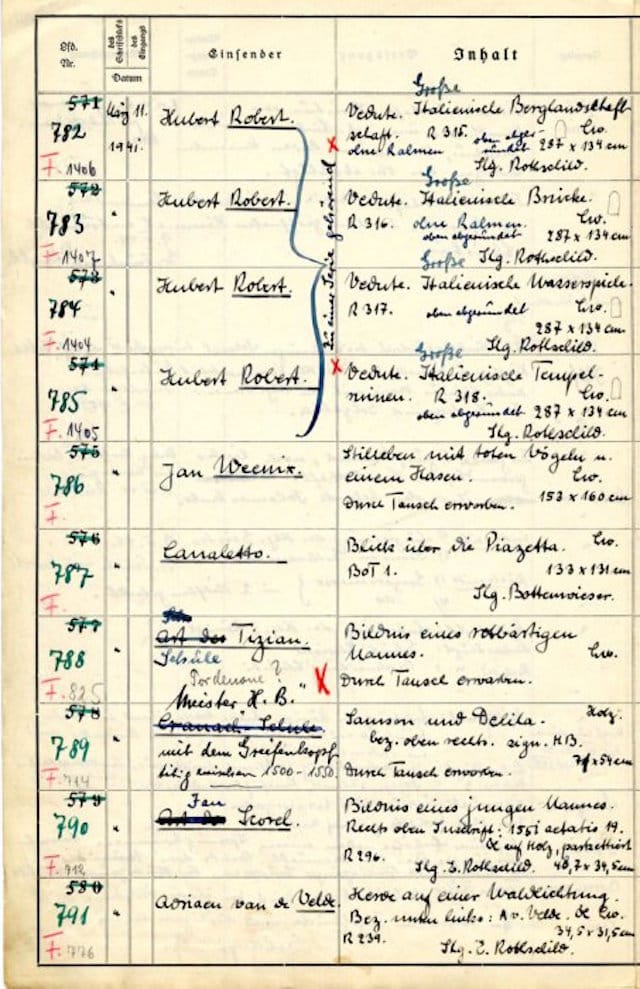 Lfd. Nr.
des Schriftstücks
des Eingangs
Datum
Einsender
Inhalt
571
782
F. 1406
März 11.
1941.
Hubert Robert.
Große
Vedute. Italienische Berglandschaft
schaft. R 315. oben abge- Lw.
ohne Rahmen rundet 287 x 134 cm
Slg. Rothschild.
Zu einer Serie gehörend
572
783
F. 1407
"
Hubert Robert.
Große
Vedute. Italienische Brücke.
R 316. ohne Rahmen. Lw.
oben abgerundet 287 x 134 cm
Slg. Rothschild.
573
784
F. 1404
"
Hubert Robert.
Große
Vedute. Italienische Wasserspiele.
R 317. oben abgerundet Lw.
287 x 134 cm
Slg. Rothschild.
574
785
F. 1405
"
Hubert Robert.
Große
Vedute. Italienische Tempel-
ruinen. R 318. Lw.
oben abgerundet 287 x 134 cm
Slg. Rothschild.
575
786
F.
"
Jan Weenix.
Stilleben mit toten Vögeln u.
einem Hasen. Lw.
Durch Tausch erworben. 153 x 160 cm
576
787
F.
"
Canaletto.
Blick über die Piazetta. Lw.
BoT 1. 133 x 131 cm
Slg. Bottenwieser.
577
788
F. 825
"
Art des Tizian.
Schüle
Pordenone?
Bildnis eines rotbärtigen
Mannes. Lw.
Durch Tausch erworben.
578
789
F. 714
"
Meister "H. B."
Cranach-Schule
mit dem Greifenkopf
tätig zwischen 1500-1550
Samson und Delila. Holz.
bez. oben rechts. sign. H.B.
x 54 cm
Durch Tausch erworben.
579
790
F. 712
"
Jan
Art des Scorel.
Bildnis eines jungen Mannes.
Rechts oben Inschrift: 1551 aetatis 19.
Öl auf Holz, parkettiert
R 296. Slg. E. Rothschild. 48,7 x 34,5 cm
580
791
F. 776
"
Adriaen van de Velde.
Herde auf einer Waldlichtung.
Bez. unten links: A. v. Velde. Öl Lw.
R 239. 34,5 x 31,5 cm
Slg. E. Rothschild.